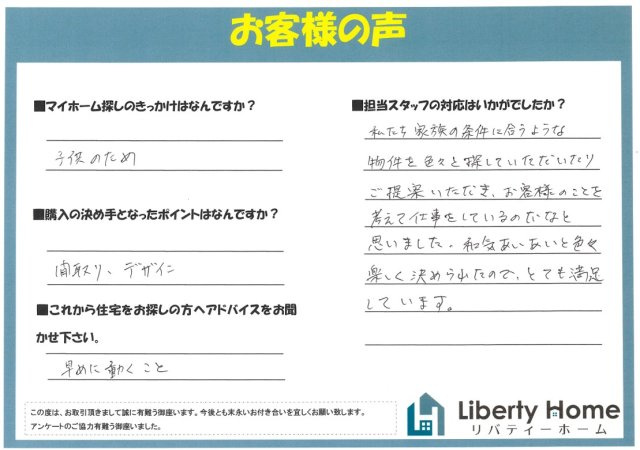 お客様の声
■マイホーム探しのきっかけはなんですか？
子供のため
■購入の決め手となったポイントはなんですか？
間取り、デザイン
■これから住宅をお探しの方へアドバイスをお聞
かせ下さい。
早めに動くこと
■担当スタッフの対応はいかがでしたか？
私たち家族の条件に合うような
物件を色々と探していただいたり
ご提案いただき、お客様のことを
考えて仕事をしているのだなと
思いました。和気あいあいと色々
楽しく決められたので、とても満足
しています。
この度は、お取引頂きまして誠に有難う御座います。今後とも末永いお付き合いを宜しくお願い致します。
アンケートのご協力有難う御座いました。
Liberty Home
リバティーホーム